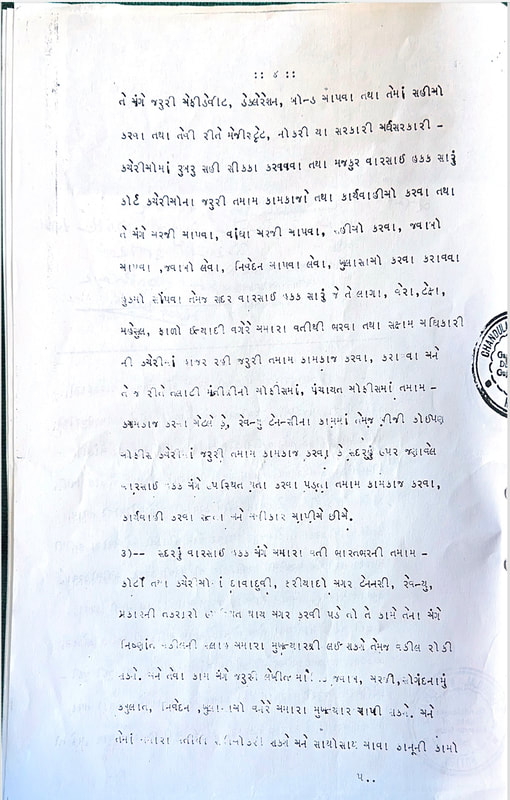 :: ૪ ::
તે અંગે જરૂરી એફીડેવીટ, ડેકલેરેશન, બોન્ડ આપવા તથા તેમાં સહીઓ
કરવા તથા તેવી રીતે મેજીસ્ટ્રેટ, નોકરી યા સરકારી અર્ધસરકારી -
કચેરીઓમાં રુબરુ સહી સીકકા કરાવવા તથા મજકુર વારસાઈ હકક સારું
કોર્ટ કચેરીઓના જરૂરી તમામ કામકાજો તથા કાર્યવાહીઓ કરવા તથા
તે અંગે અરજી આપવા, વાંધા અરજી આપવા, સહીઓ કરવા, જવાબો
આપવા ,જવાબો લેવા, નિવેદન આપવા લેવા, ખુલાસાઓ કરવા કરાવવા
હુકમો સોંપવા તેમજ સદર વારસાઈ હકક સારું જે તે લાગા, વેરા,ટેક્ષ,
મહેસુલ, ફાળો ઈત્યાદી વગેરે અમારા વતીથી ભરવા તથા સક્ષમ અધિકારી
ની કચેરીમાં હાજર રહી જરૂરી તમામ કામકાજ કરવા, કરાવવા અને
તે જ રીતે તલાટી મંત્રીની ઓફીસમાં, પંચાયત ઓફીસમાં તમામ -
કામકાજ કરવા એટલે કે, રેવન્યુ ટેનન્સીના કામમાં તેમજ બીજી કોઈપણ
ઓફીસ કચેરીમાં જરૂરી તમામ કામકાજ કરવા કે સદરહું ઉપર જણાવેલ
વારસાઈ હકક અંગે ઉપસ્થિત થતા કરવા પડતા તમામ કામકાજ કરવા,
કાર્યવાહી કરવા સત્તા અને અધીકાર આપીએ છીએ.
૩)-- સદરહું વારસાઈ હકક અંગે અમારા વતી ભારતભરની તમામ -
કોર્ટો તથા કચેરીઓમાં દાવાદુવી, ફરીયાદો અગર ટેનન્સી, રેવન્યુ,
પ્રકારની તકરારો ઉપસ્થિત થાય અગર કરવી પડે તો તે કામે તેના અંગે
નિષ્ણાંત વકીલની સલાહ અમારા મુખત્યારશ્રી લઈ શકશે તેમજ વકીલ રોકી
શકશે. અને તેવા કામ અંગે જરૂરી લેખીત જવાબ, અરજી,સોગંદનામું
કબુલાત, નિવેદન ,ખુલાસાઓ વગેરે અમારા મુખત્યાર આપી શકશે. અને
તેમાં અમારા વતીથી સહીઓકરી શકશે અને સાથોસાથ આવા કાનૂની કામો
૫..
CHANDULAL